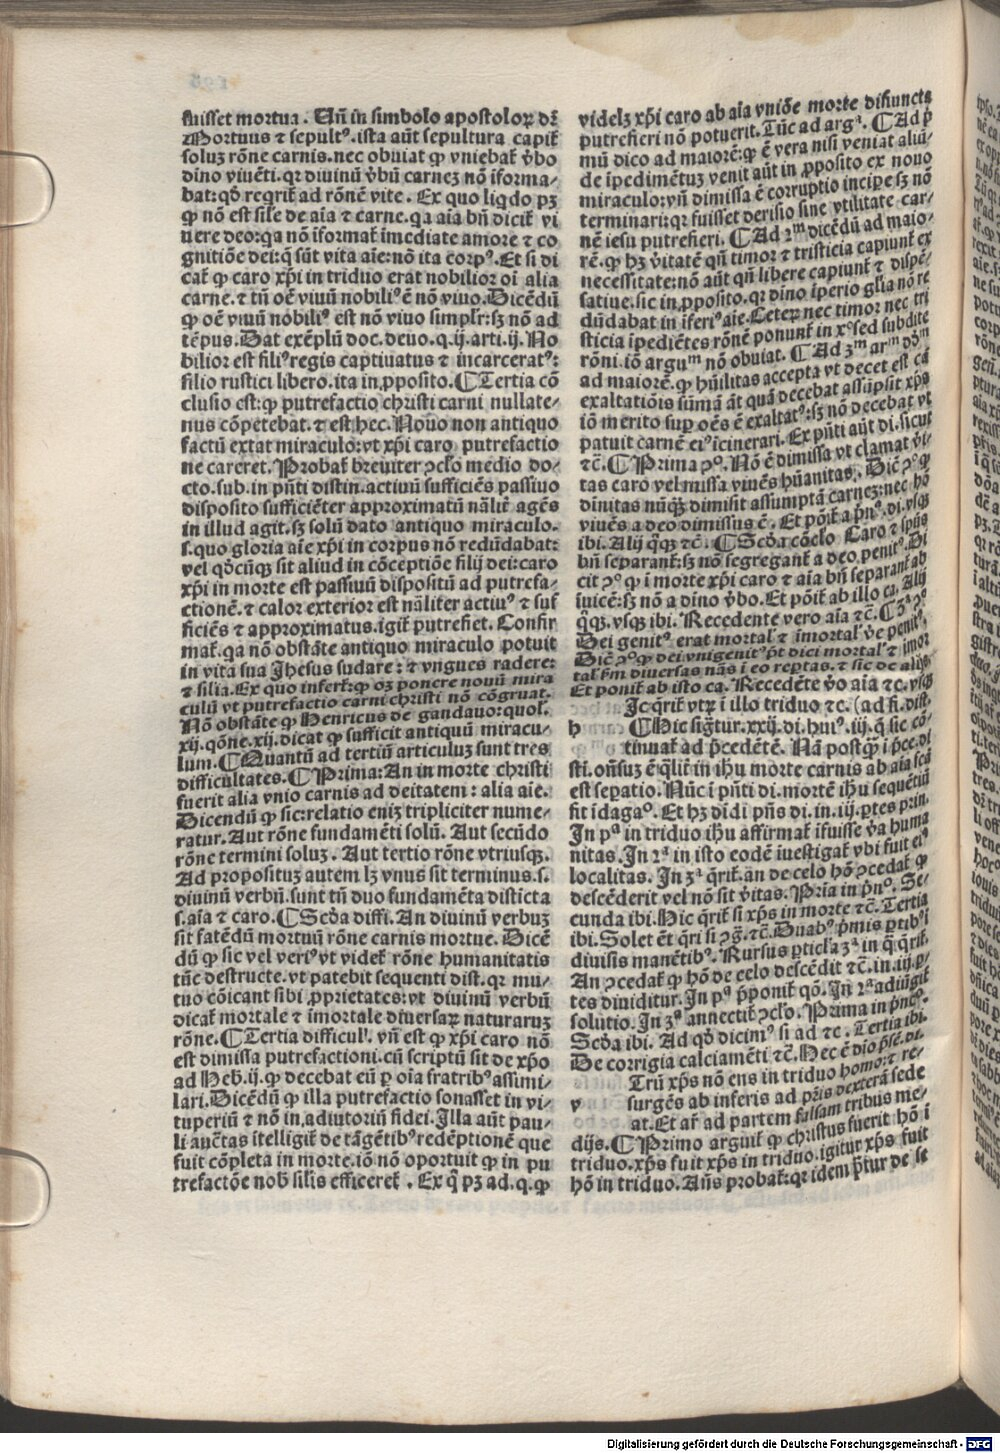 fuisset mortua. Uñ in simbolo apostoloꝝ dr̃
Mortuus ⁊ sepultꝰ. ista aũt sepultura capit̃
soluꝫ rõne carnis. nec obuiat ꝙ vniebat̃ v̓bo
diuino viuẽti. qꝛ diuinũ v̓bũ carneꝫ nõ ĩforma-
bat: qð reqrit̃ ad rõnẽ vite. Ex quo liqdo pꝫ
ꝙ nõ est sil̃e de aĩa ⁊ carne. qa aĩa bñ dicit̃ vi
uere deo: qa nõ ĩformat̃ ĩmediate amore ⁊ co
gnitiõe dei: q̃ sũt vita aĩe: nõ ita corpꝰ. Et si di
cat̃ ꝙ caro xp̃i in triduo erat nobilior oĩ alia
carne. ⁊ tñ oẽ viuũ nobiliꝰ ẽ nõ viuo. Dicẽdũ
ꝙ oẽ viuũ nobiliꝰ est nõ viuo simpl̃r: sꝫ nõ ad
tẽpus. Dat exẽplũ doc. deuo. q. ij. arti. ij. No
bilior est filiꝰ regis captiuatus ⁊ incarceratꝰ:
filio rustici libero. ita in ꝓposito. ¶ Tertia cõ
clusio est: ꝙ putrefactio christi carni nullate-
nus cõpetebat. ⁊ est hec. Nouo non antiquo
factũ extat miraculo: vt xp̃i caro putrefactio
ne careret. Probat̃ breuiter ↄcl̃o medio do-
cto. sub. in pñti distin. actiuũ sufficiẽs passiuo
disposito sufficiẽter approximatũ nãlit̃ agẽs
in illud agit. sꝫ solũ dato antiquo miraculo.
s. quo gloria aĩe xp̃i in corpus nõ redũdabat:
vel qðcũqꝫ sit aliud in cõceptiõe filij dei: caro
xp̃i in morte est passiuũ dispositũ ad putrefa-
ctionẽ. ⁊ calor exterior est nãliter actiuꝰ ⁊ suf
ficiẽs ⁊ approximatus. igit̃ putrefiet. Confir
mat̃. qa nõ obstãte antiquo miraculo potuit
in vita sua Jhesus sudare: ⁊ vngues radere:
⁊ silia. Ex quo infert̃: ꝙ oꝫ ponere nouũ mira
culũ vt putrefactio carni christi nõ cõgruat.
Nõ obstãte ꝙ Henricus de gandauo: quol̃.
xij. qõne. xij. dicat ꝙ sufficit antiquũ miracu-
lum. ¶ Quantũ ad tertiũ articuluꝫ sunt tres
difficultates. ¶ Prima: An in morte christi
fuerit alia vnio carnis ad deitatem: alia aĩe.
Dicendũ ꝙ sic: relatio eniꝫ tripliciter nume-
ratur. Aut rõne fundamẽti solũ. Aut secũdo
rõne termini soluꝫ. Aut tertio rõne vtriusqꝫ.
Ad propositum autem lꝫ vnus sit terminus. s.
diuinũ verbũ. sunt tñ duo fundamẽta distĩcta
s. aĩa ⁊ caro. ¶ Scðа diffi. An diuinũ verbuꝫ
sit fatẽdũ mortuũ rõne carnis mortue. Dicẽ
dũ ꝙ sic vel veriꝰ vt videt̃ rõne humanitatis
tũc destructe. vt patebit sequenti dist. qꝛ mu-
tuo cõicant sibi ꝓprietates: vt diuinũ verbũ
dicat̃ mortale ⁊ ĩmortale diuersaꝝ naturaruꝫ
rõne. ¶ Tertia difficul̃. vñ est ꝙ xp̃i caro nõ
est dimissa putrefactioni. cũ scriptũ sit de xp̃o
ad Heb. ij. ꝙ decebat eũ ꝑ oĩa fratribꝰ assimi-
lari. Dicẽdũ ꝙ illa putrefactio sonasset in vi-
tuperiũ ⁊ nõ in adiutoriũ fidei. Illa aũt pau-
li auẽtas ĩtelligit̃ de tãgẽtibꝰ redẽptionẽ que
fuit cõpleta in morte. iõ nõ oportuit ꝙ in pu
trefactõe nob̃ sil̃is efficeret̃. Ex q̃ pꝫ ad. q. ꝙ
videlꝫ xp̃i caro ab aĩa vniõe morte disiuncta
putrefieri nõ potuerit. Tũc ad argᵃ. ¶ Ad p̃
mũ dico ad maiorẽ: ꝙ ẽ vera nisi veniat aliũ-
de ĩpedimẽtuꝫ venit aũt in ꝓposito ex nouo
miraculo: vñ dimissa ẽ corruptio incipe sꝫ nõ
terminari: qꝛ fuisset derisio sine vtilitate car-
nẽ iesu putrefieri. ¶ Ad 2ᵐ dicẽdũ ad maio-
rẽ. ꝙ hꝫ v̓itatẽ qñ timor ⁊ tristicia capiunt̃ ex
necessitate: nõ aũt qñ libere capiunt̃ ⁊ dispẽ-
satiue. sic in ꝓposito. qꝛ diuino ĩperio gl̃ia nõ re
dũdabat in ĩferiꝰ aĩe. Ceteꝝ nec timor nec tri
sticia ĩpediẽtes rõnẽ ponunt̃ in xᵒ sed subdite
rõni. iõ argumᵐ nõ obuiat. ¶ Ad 3ᵐ arᵐ dõᵐ
ad maiorẽ. ꝙ hũilitas accepta vt decet est cã
exaltatiõis sũmã aũt quã decebat assũpsit xp̃s
iõ merito suꝑ oẽs ẽ exaltatꝰ: sꝫ nõ decebat vt
patuit carnẽ eiꝰ ĩcinerari. Ex pñti aũt di. sicut
⁊c̃. ¶ Prima ↄᵒ. Nõ ẽ dimissa vt clamat v̓i-
tas caro vel missa viuẽs hũanitas. Dic̃ ↄᵒ ꝙ
diuinitas nũqꝫ dimisit assumptã carneꝫ: nec hõ
viuẽs a deo dimissus ẽ. Et põit̃ a p̃nᵒ. di. vsqꝫ
ibi. Alij q̃qꝫ ⁊c̃. ¶ Scðа cõcl̃o Caro ⁊ sp̃us
bñ separant̃: sꝫ nõ segregant̃ a deo penitꝰ. Di
cit ↄᵒ ꝙ ĩ morte xp̃i caro ⁊ aĩa bñ separant̃ ab
ĩuicẽ: sꝫ nõ a diuino v̓bo. Et põit̃ ab illo ca. Alij
q̃qꝫ. vsqꝫ ibi. Recedente vero aĩa ⁊c̃. ¶ 3ᵃ ↄᵒ
Dei genitꝰ erat mortal̃ ⁊ ĩmortal̃ v̓e penitꝰ.
Dic̃ ↄᵒ ꝙ dei vnigenitꝰ pt̃ dici mortal̃ ⁊ ĩmor
tal̃ ẜm diuersas nãs ĩ eo reꝑtas. ⁊ sic de alijs.
Et ponit̃ ab isto ca. Recedẽte v̓o aĩa ⁊c̃. vsqꝫ
Jc qrit̃ vtꝝ ĩ illo triduo ⁊c̃. (ad fi. dist.
h ¶ Hic sigt̃ur. xxij. di. huiꝰ. iij. q̃ sic cõ-
tinuat̃ ad p̃cedẽtẽ. Nã postꝗ̃ ĩ p̃ce. di
sti. oñsuꝫ ẽ ql̃it̃ in ihũ morte carnis ab aĩa fcã
est seꝑatio. Nũc ĩ pñti di. mortẽ ihũ sequẽtiũ
fit ĩdagaᵒ. Et hꝫ diuidi pñs di. in. iij. ꝑtes prin.
In pᵃ in triduo ihũ affirmat̃ ĩfuisse v̓a huma
nitas. In 2ᵃ in isto eodẽ ĩuestigat̃ vbi fuit eiꝰ
localitas. In 3ᵃ qrit̃. an de celo hõ ↄcedat̃ ꝙ
descẽderit vel nõ sit v̓itas. Pria in p̃nᵒ. Se-
cunda ibi. Hic qrit̃ si xp̃s in morte ⁊c̃. Tertia
ibi. Solet ẽt qri si ↄg̃. ⁊c̃. Duabꝰ p̃mis ꝑtibꝰ ĩ
diuisis manẽtibꝰ. Rursus ꝑticl̃a 3ᵃ in q̃ qrit̃.
An ↄcedat̃ ꝙ hõ de celo descẽdit ⁊c̃. in. iij. ꝑ-
tes diuiditur. In pᵃ p̃ponit̃ qõ. In 2ᵃ adiũgit̃
solutio. In 3ᵃ annectit̃ ↄcl̃o. Prima in p̃ncᵒ.
Scðа ibi. Ad qð dicimꝰ si ad ⁊c̃. Tertia ibi.
De corrigia calciamẽti ⁊c̃. Hec ẽ diuio p̃se. di.
Trũ xp̃s nõ ens in triduo homo: ⁊ re-
v surgẽs ab inferis ad p̃ris dexterã sede
at. Et ar̃ ad partem falsam tribus me-
dijs. ¶ Primo arguit̃ ꝙ christus fuerit hõ ĩ
triduo. xp̃s fuit xp̃s in triduo. igitur xp̃s fuit
hõ in triduo. Añs probat̃: qꝛ idem p̃tur de se
Digitalisierung gefördert durch die Deutsche Forschungsgemeinschaft - DFG